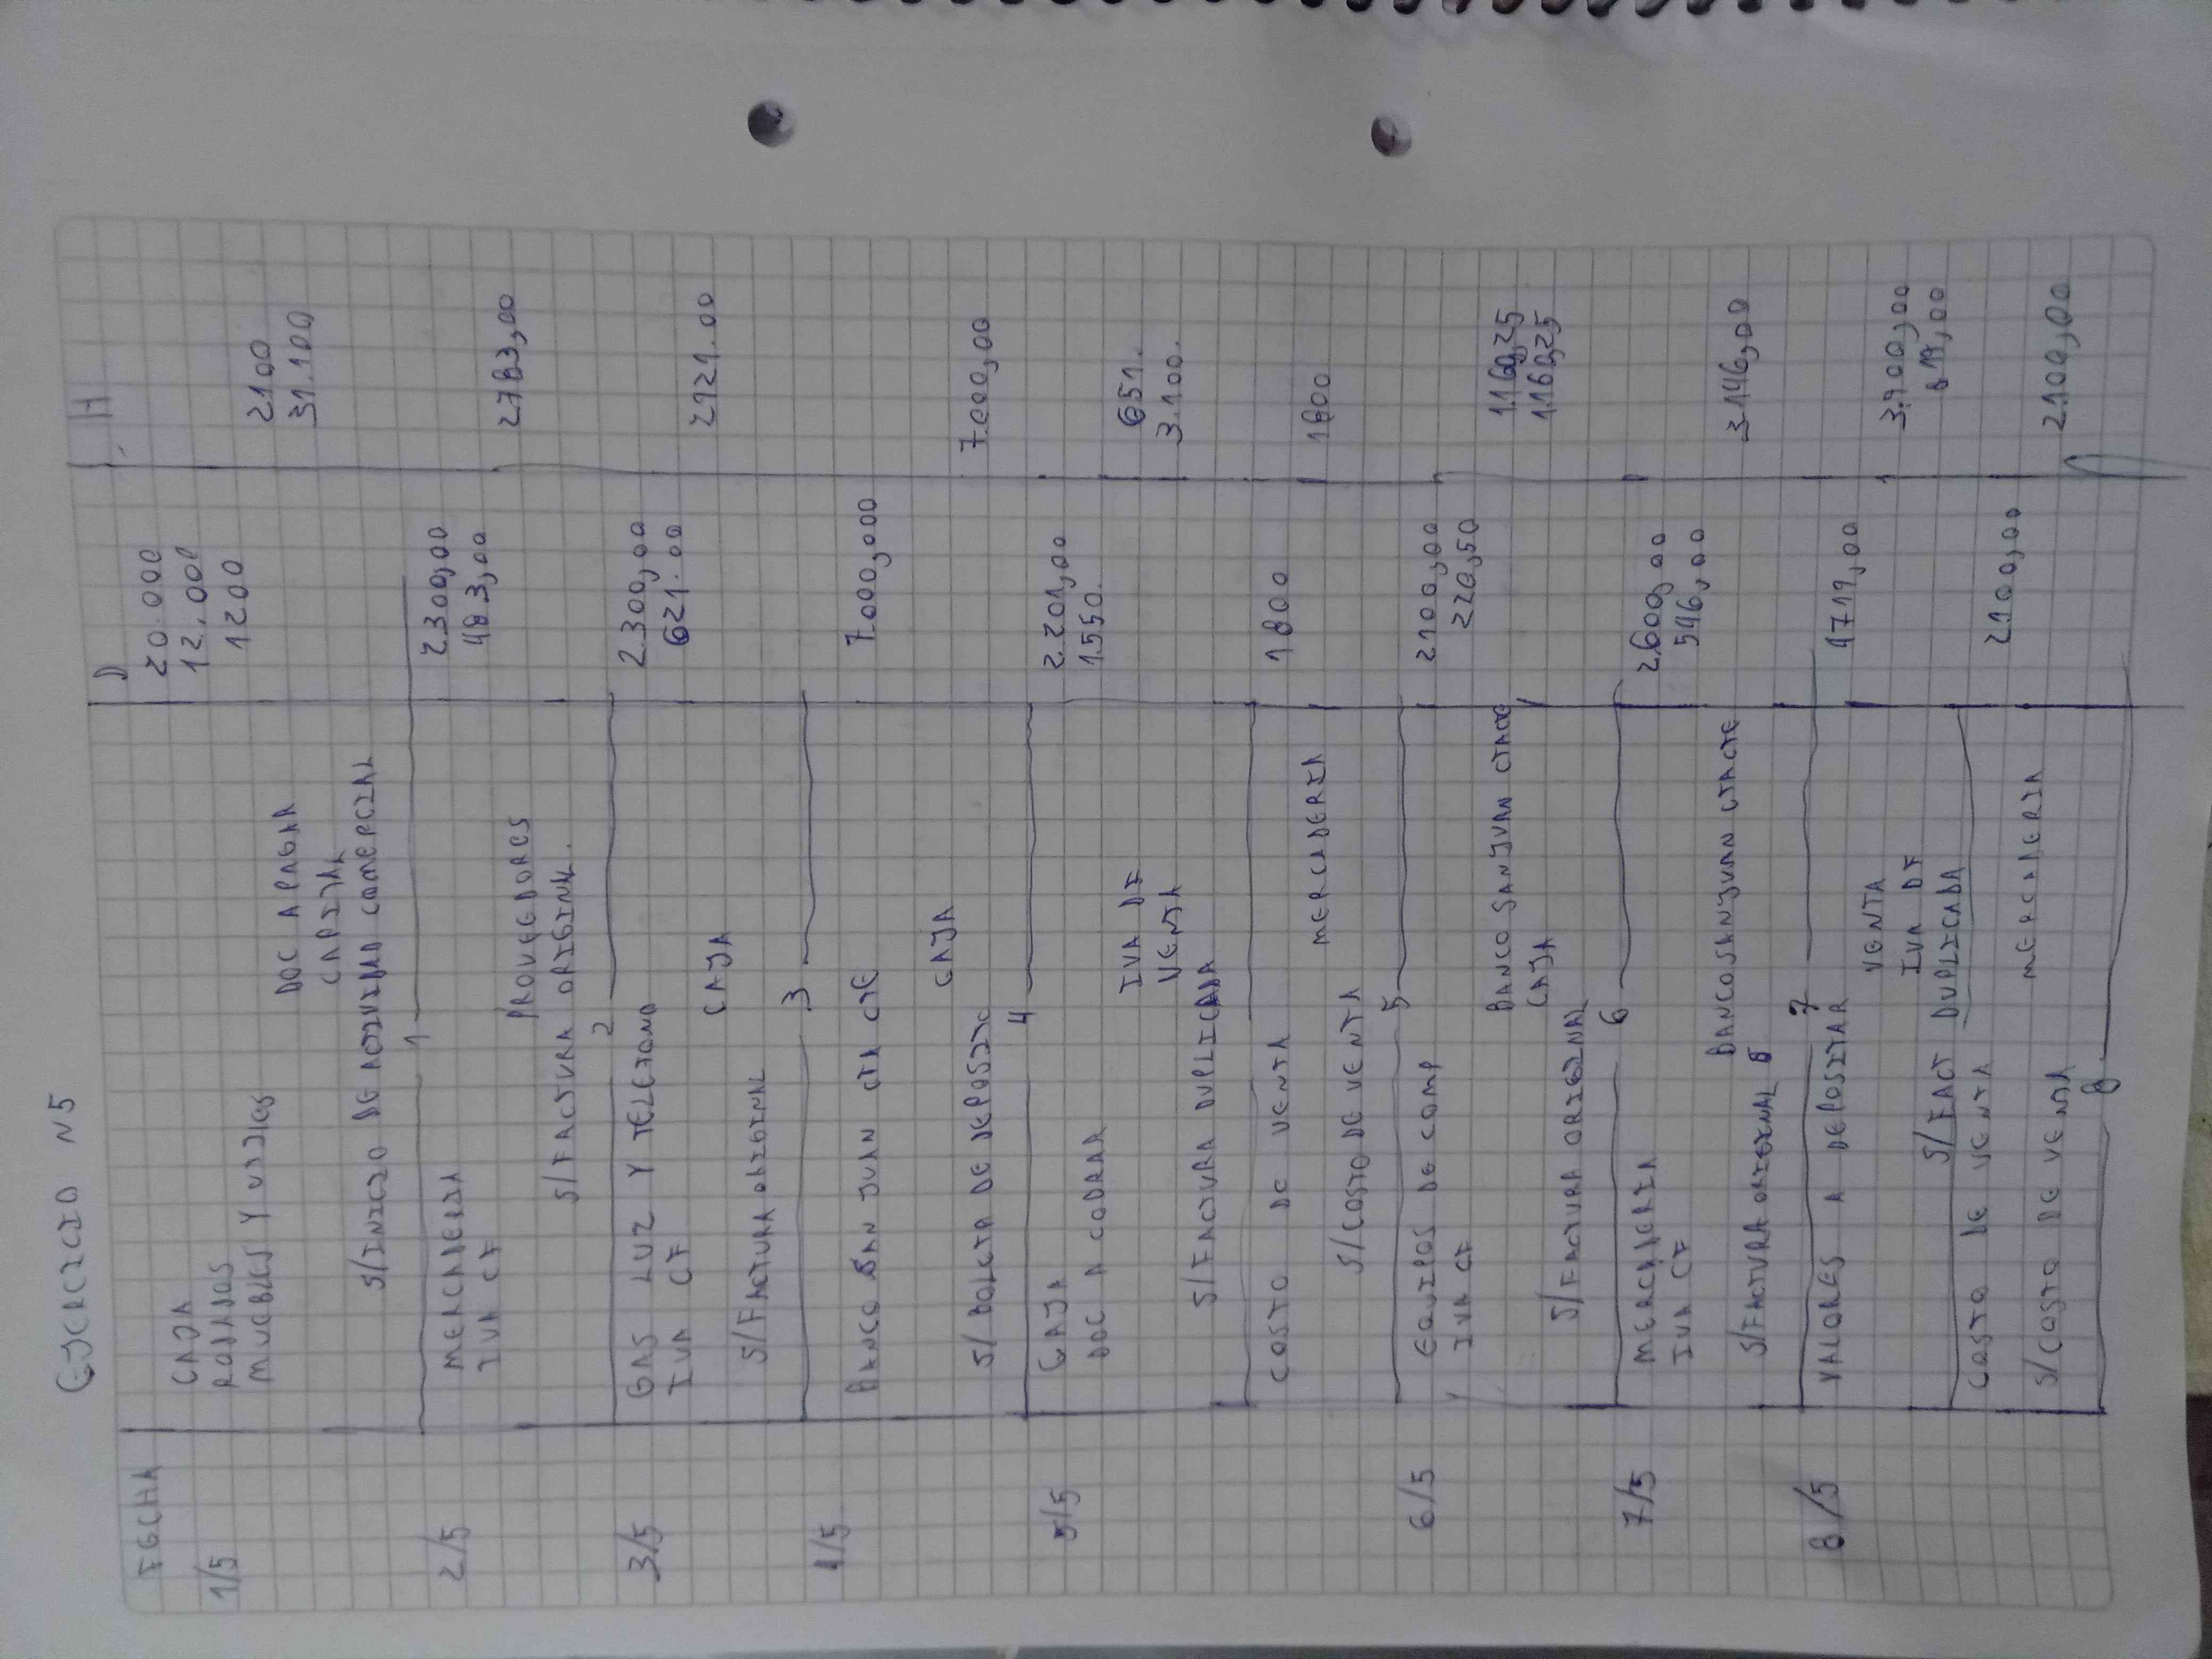 EJERCICIO N5
FECHA D H
1/5 CAJA 20.000
RODADOS 12.000
MUEBLES Y UTILES 1200
DOC A PAGAR 2100
CAPITAL 31.100
S/INICIO DE ACTIVIDAD COMERCIAL
1
2/5 MERCADERIA 2.300,00
IVA CF 483,00
PROVEEDORES 2783,00
S/FACTURA ORIGINAL.
2
3/5 GAS LUZ Y TELEFONO 2.300,00
IVA CF 621.00
CAJA 2921.00
S/FACTURA ORIGINAL
3
4/5 BANCO SAN JUAN CTA CTE 7.000,000
CAJA 7.000,00
S/ BOLETA DE DEPOSITO
4
5/5 CAJA 2.201,00
DOC A COBRAR 1.550.
IVA DF 651.
VENTA 3.100.
S/FACTURA DUPLICADA
COSTO DE VENTA 1800
MERCADERIA 1800
S/COSTO DE VENTA
5
6/5 EQUIPOS DE COMP 2100,00
IVA CF 220,50
BANCO SAN JUAN CTACTE 1.160,25
CAJA 1.160,25
S/FACTURA ORIGINAL
6
7/5 MERCADERIA 2.600,00
IVA CF 546,00
BANCO SAN JUAN CTACTE 3.146,00
S/FACTURA ORIGINAL
7
8/5 VALORES A DEPOSITAR 4719,00
VENTA 3.900,00
IVA DF 819,00
S/FACT DUPLICADA
COSTO DE VENTA 2.100,00
MERCADERIA 2.100,00
S/COSTO DE VENTA
8